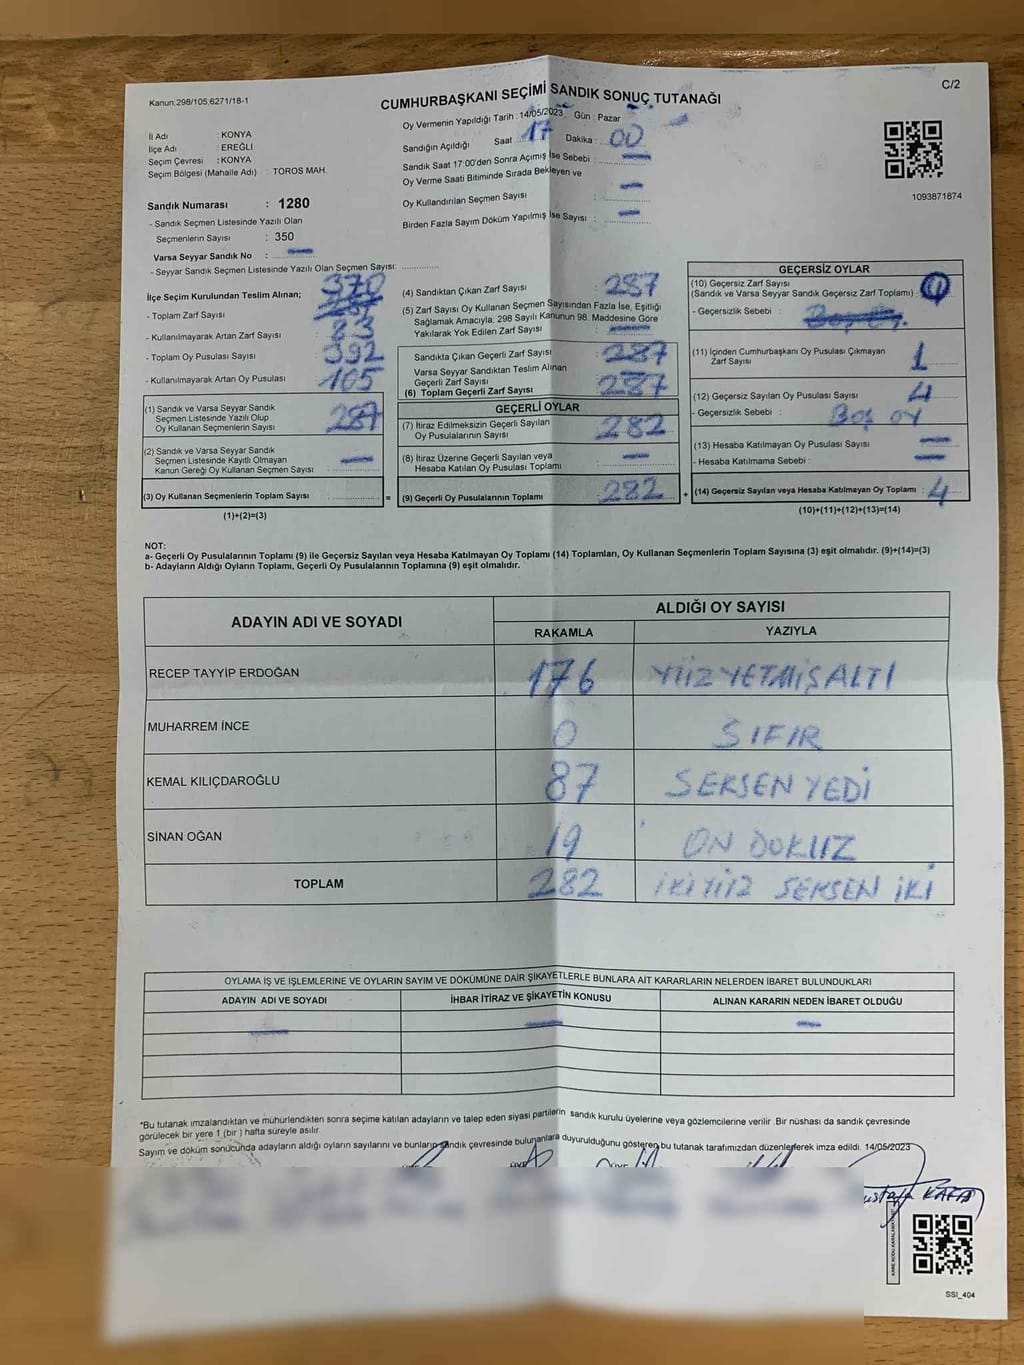 Kanun:298/105.6271/18-1
C/2
CUMHURBAŞKANI SEÇİMİ SANDIK SONUÇ TUTANAĞI
Oy Vermenin Yapıldığı Tarih : 14/05/2023 Gün : Pazar
İl Adı : KONYA
İlçe Adı : EREĞLİ
Seçim Çevresi : KONYA
Seçim Bölgesi (Mahalle Adı) : TOROS MAH.
Sandığın Açıldığı Saat : 17 Dakika : 00
Sandık Saat 17:00'den Sonra Açılmış İse Sebebi : —
Oy Verme Saati Bitiminde Sırada Bekleyen ve
Oy Kullandırılan Seçmen Sayısı : —
Birden Fazla Sayım Döküm Yapılmış İse Sayısı : —
1093871874
Sandık Numarası : 1280
- Sandık Seçmen Listesinde Yazılı Olan
Seçmenlerin Sayısı : 350
Varsa Seyyar Sandık No : —
- Seyyar Sandık Seçmen Listesinde Yazılı Olan Seçmen Sayısı: ............
İlçe Seçim Kurulundan Teslim Alınan;
- Toplam Zarf Sayısı : 370
- Kullanılmayarak Artan Zarf Sayısı : 83
- Toplam Oy Pusulası Sayısı : 392
- Kullanılmayarak Artan Oy Pusulası : 105
(1) Sandık ve Varsa Seyyar Sandık
Seçmen Listesinde Yazılı Olup
Oy Kullanan Seçmenlerin Sayısı : 287
(2) Sandık ve Varsa Seyyar Sandık
Seçmen Listesinde Kayıtlı Olmayan
Kanun Gereği Oy Kullanan Seçmen Sayısı : —
(3) Oy Kullanan Seçmenlerin Toplam Sayısı : ............ =
(1)+(2)=(3)
(4) Sandıktan Çıkan Zarf Sayısı : 287
(5) Zarf Sayısı Oy Kullanan Seçmen Sayısından Fazla İse, Eşitliği
Sağlamak Amacıyla; 298 Sayılı Kanunun 98. Maddesine Göre
Yakılarak Yok Edilen Zarf Sayısı : —
Sandıkta Çıkan Geçerli Zarf Sayısı : 287
Varsa Seyyar Sandıktan Teslim Alınan
Geçerli Zarf Sayısı
(6) Toplam Geçerli Zarf Sayısı : 287
GEÇERLİ OYLAR
(7) İtiraz Edilmeksizin Geçerli Sayılan
Oy Pusulalarının Sayısı : 282
(8) İtiraz Üzerine Geçerli Sayılan veya
Hesaba Katılan Oy Pusulası Toplamı : —
(9) Geçerli Oy Pusulalarının Toplamı : 282 +
GEÇERSİZ OYLAR
(10) Geçersiz Zarf Sayısı
(Sandık ve Varsa Seyyar Sandık Geçersiz Zarf Toplamı) :
- Geçersizlik Sebebi :
(11) İçinden Cumhurbaşkanı Oy Pusulası Çıkmayan
Zarf Sayısı : 1
(12) Geçersiz Sayılan Oy Pusulası Sayısı : 4
- Geçersizlik Sebebi : Boş oy
(13) Hesaba Katılmayan Oy Pusulası Sayısı : —
- Hesaba Katılmama Sebebi : —
(14) Geçersiz Sayılan veya Hesaba Katılmayan Oy Toplamı : 4
(10)+(11)+(12)+(13)=(14)
NOT:
a- Geçerli Oy Pusulalarının Toplamı (9) ile Geçersiz Sayılan veya Hesaba Katılmayan Oy Toplamı (14) Toplamları, Oy Kullanan Seçmenlerin Toplam Sayısına (3) eşit olmalıdır. (9)+(14)=(3)
b- Adayların Aldığı Oyların Toplamı, Geçerli Oy Pusulalarının Toplamına (9) eşit olmalıdır.
ADAYIN ADI VE SOYADI ALDIĞI OY SAYISI
RAKAMLA YAZIYLA
RECEP TAYYİP ERDOĞAN 176 YÜZ YETMİŞ ALTI
MUHARREM İNCE 0 SIFIR
KEMAL KILIÇDAROĞLU 87 SEKSEN YEDİ
SİNAN OĞAN 19 ON DOKUZ
TOPLAM 282 İKİ YÜZ SEKSEN İKİ
OYLAMA İŞ VE İŞLEMLERİNE VE OYLARIN SAYIM VE DÖKÜMÜNE DAİR ŞİKAYETLERLE BUNLARA AİT KARARLARIN NELERDEN İBARET BULUNDUKLARI
ADAYIN ADI VE SOYADI İHBAR İTİRAZ VE ŞİKAYETİN KONUSU ALINAN KARARIN NEDEN İBARET OLDUĞU
— — —
*Bu tutanak imzalandıktan ve mühürlendikten sonra seçime katılan adayların ve talep eden siyasi partilerin sandık kurulu üyelerine veya gözlemcilerine verilir .Bir nüshası da sandık çevresinde
görülecek bir yere 1 (bir ) hafta süreyle asılır.
Sayım ve döküm sonucunda adayların aldığı oyların sayılarını ve bunların sandık çevresinde bulunanlara duyurulduğunu gösteren bu tutanak tarafımızdan düzenlenerek imza edildi. 14/05/2023
SSI_404